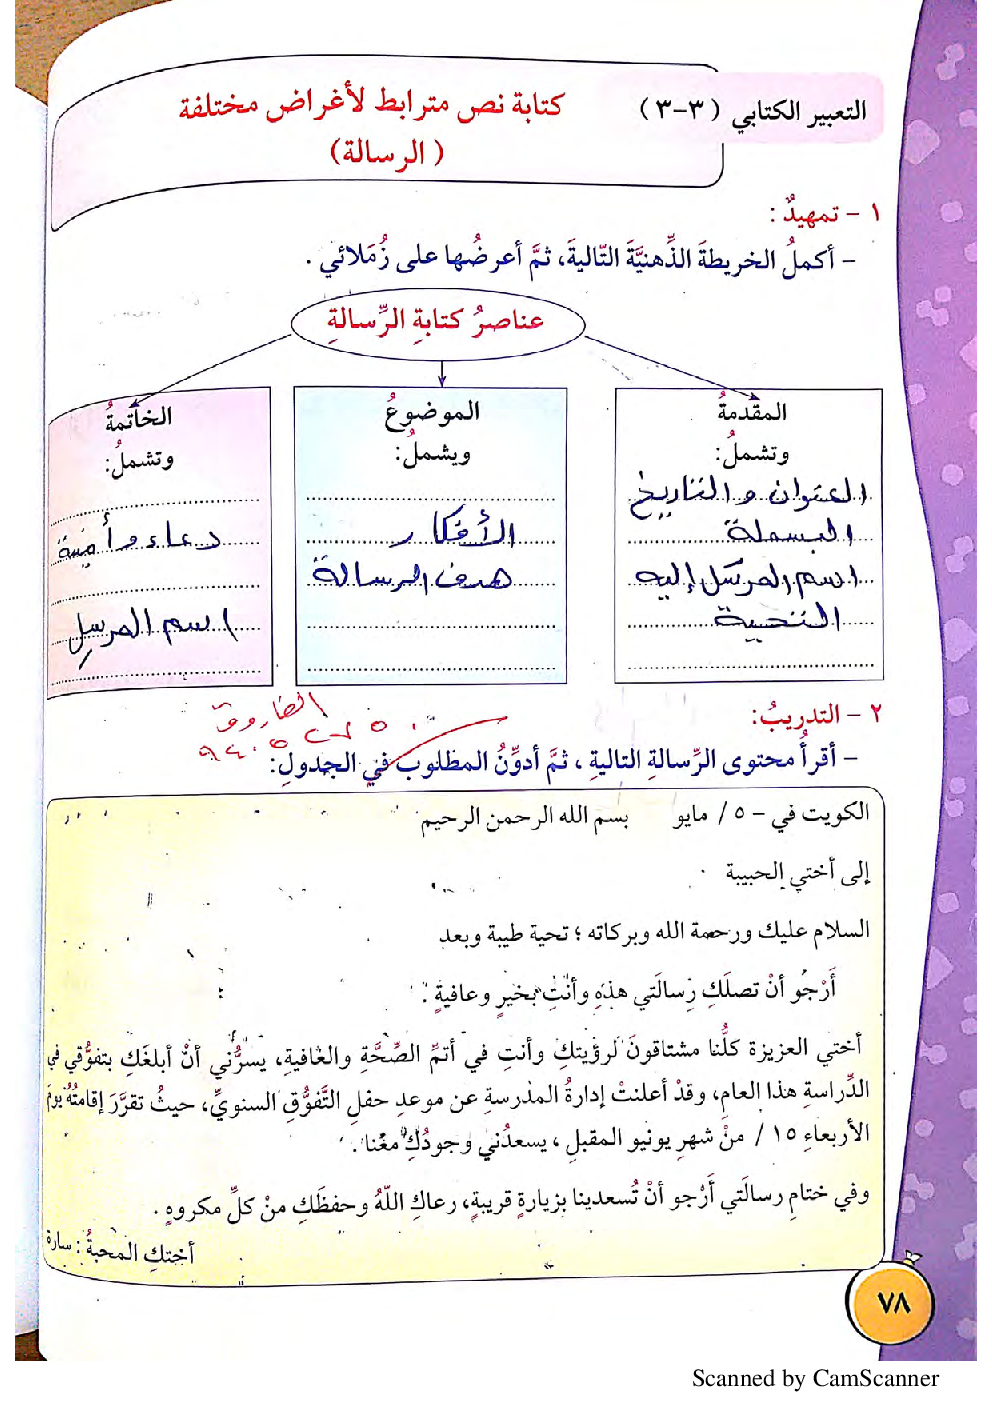 التعبير الكتابي ( ٣-٣ )
كتابة نص مترابط لأغراض مختلفة
( الرسالة)
١ - تمهيدٌ :
- أكملُ الخريطةَ الذِّهنيَّةَ التّاليةَ، ثمَّ أعرضُها على زُمَلائي .
عناصرُ كتابةِ الرِّسالةِ
المقدمةُ
وتشملُ:
العنوان والتاريخ
البسملة
اسم المرسَل إليه
التحية
الموضوعُ
ويشملُ:
الأفكار
هدف الرسالة
الخاتمةُ
وتشملُ:
دعاء وأمنية
اسم المرسِل
٢ - التدريبُ:
- أقرأُ محتوى الرِّسالةِ التاليةِ ، ثمَّ أدوِّنُ المطلوبَ في الجدولِ:
الكويت في - ٥ / مايو بسم الله الرحمن الرحيم
إلى أختي الحبيبة
السلام عليك ورحمة الله وبركاته ؛ تحية طيبة وبعد
أرْجُو أنْ تصلَكِ رسالَتي هذهِ وأنتِ بخيرٍ وعافيةٍ .
أختي العزيزة كلُّنا مشتاقونَ لرؤيتكِ وأنتِ في أتمِّ الصِّحَّةِ والعَافيةِ، يسرُّني أنْ أبلغَكِ بتفوُّقي في
الدِّراسةِ هذا العام، وقدْ أعلنتْ إدارةُ المدرسةِ عن موعدِ حفلِ التَّفوُّقِ السنويِّ، حيثُ تقرَّرَ إقامتُهُ يومَ
الأربعاءِ ١٥ / منْ شهرِ يونيو المقبلِ ، يسعدُني وجودُكِ معَنا .
وفي ختامِ رسالَتي أرْجو أنْ تُسعدينا بزيارةٍ قريبةٍ، رعاكِ اللَّهُ وحفظَكِ منْ كلِّ مكروهٍ .
أختكِ المحبةُ : سارة
٧٨
Scanned by CamScanner